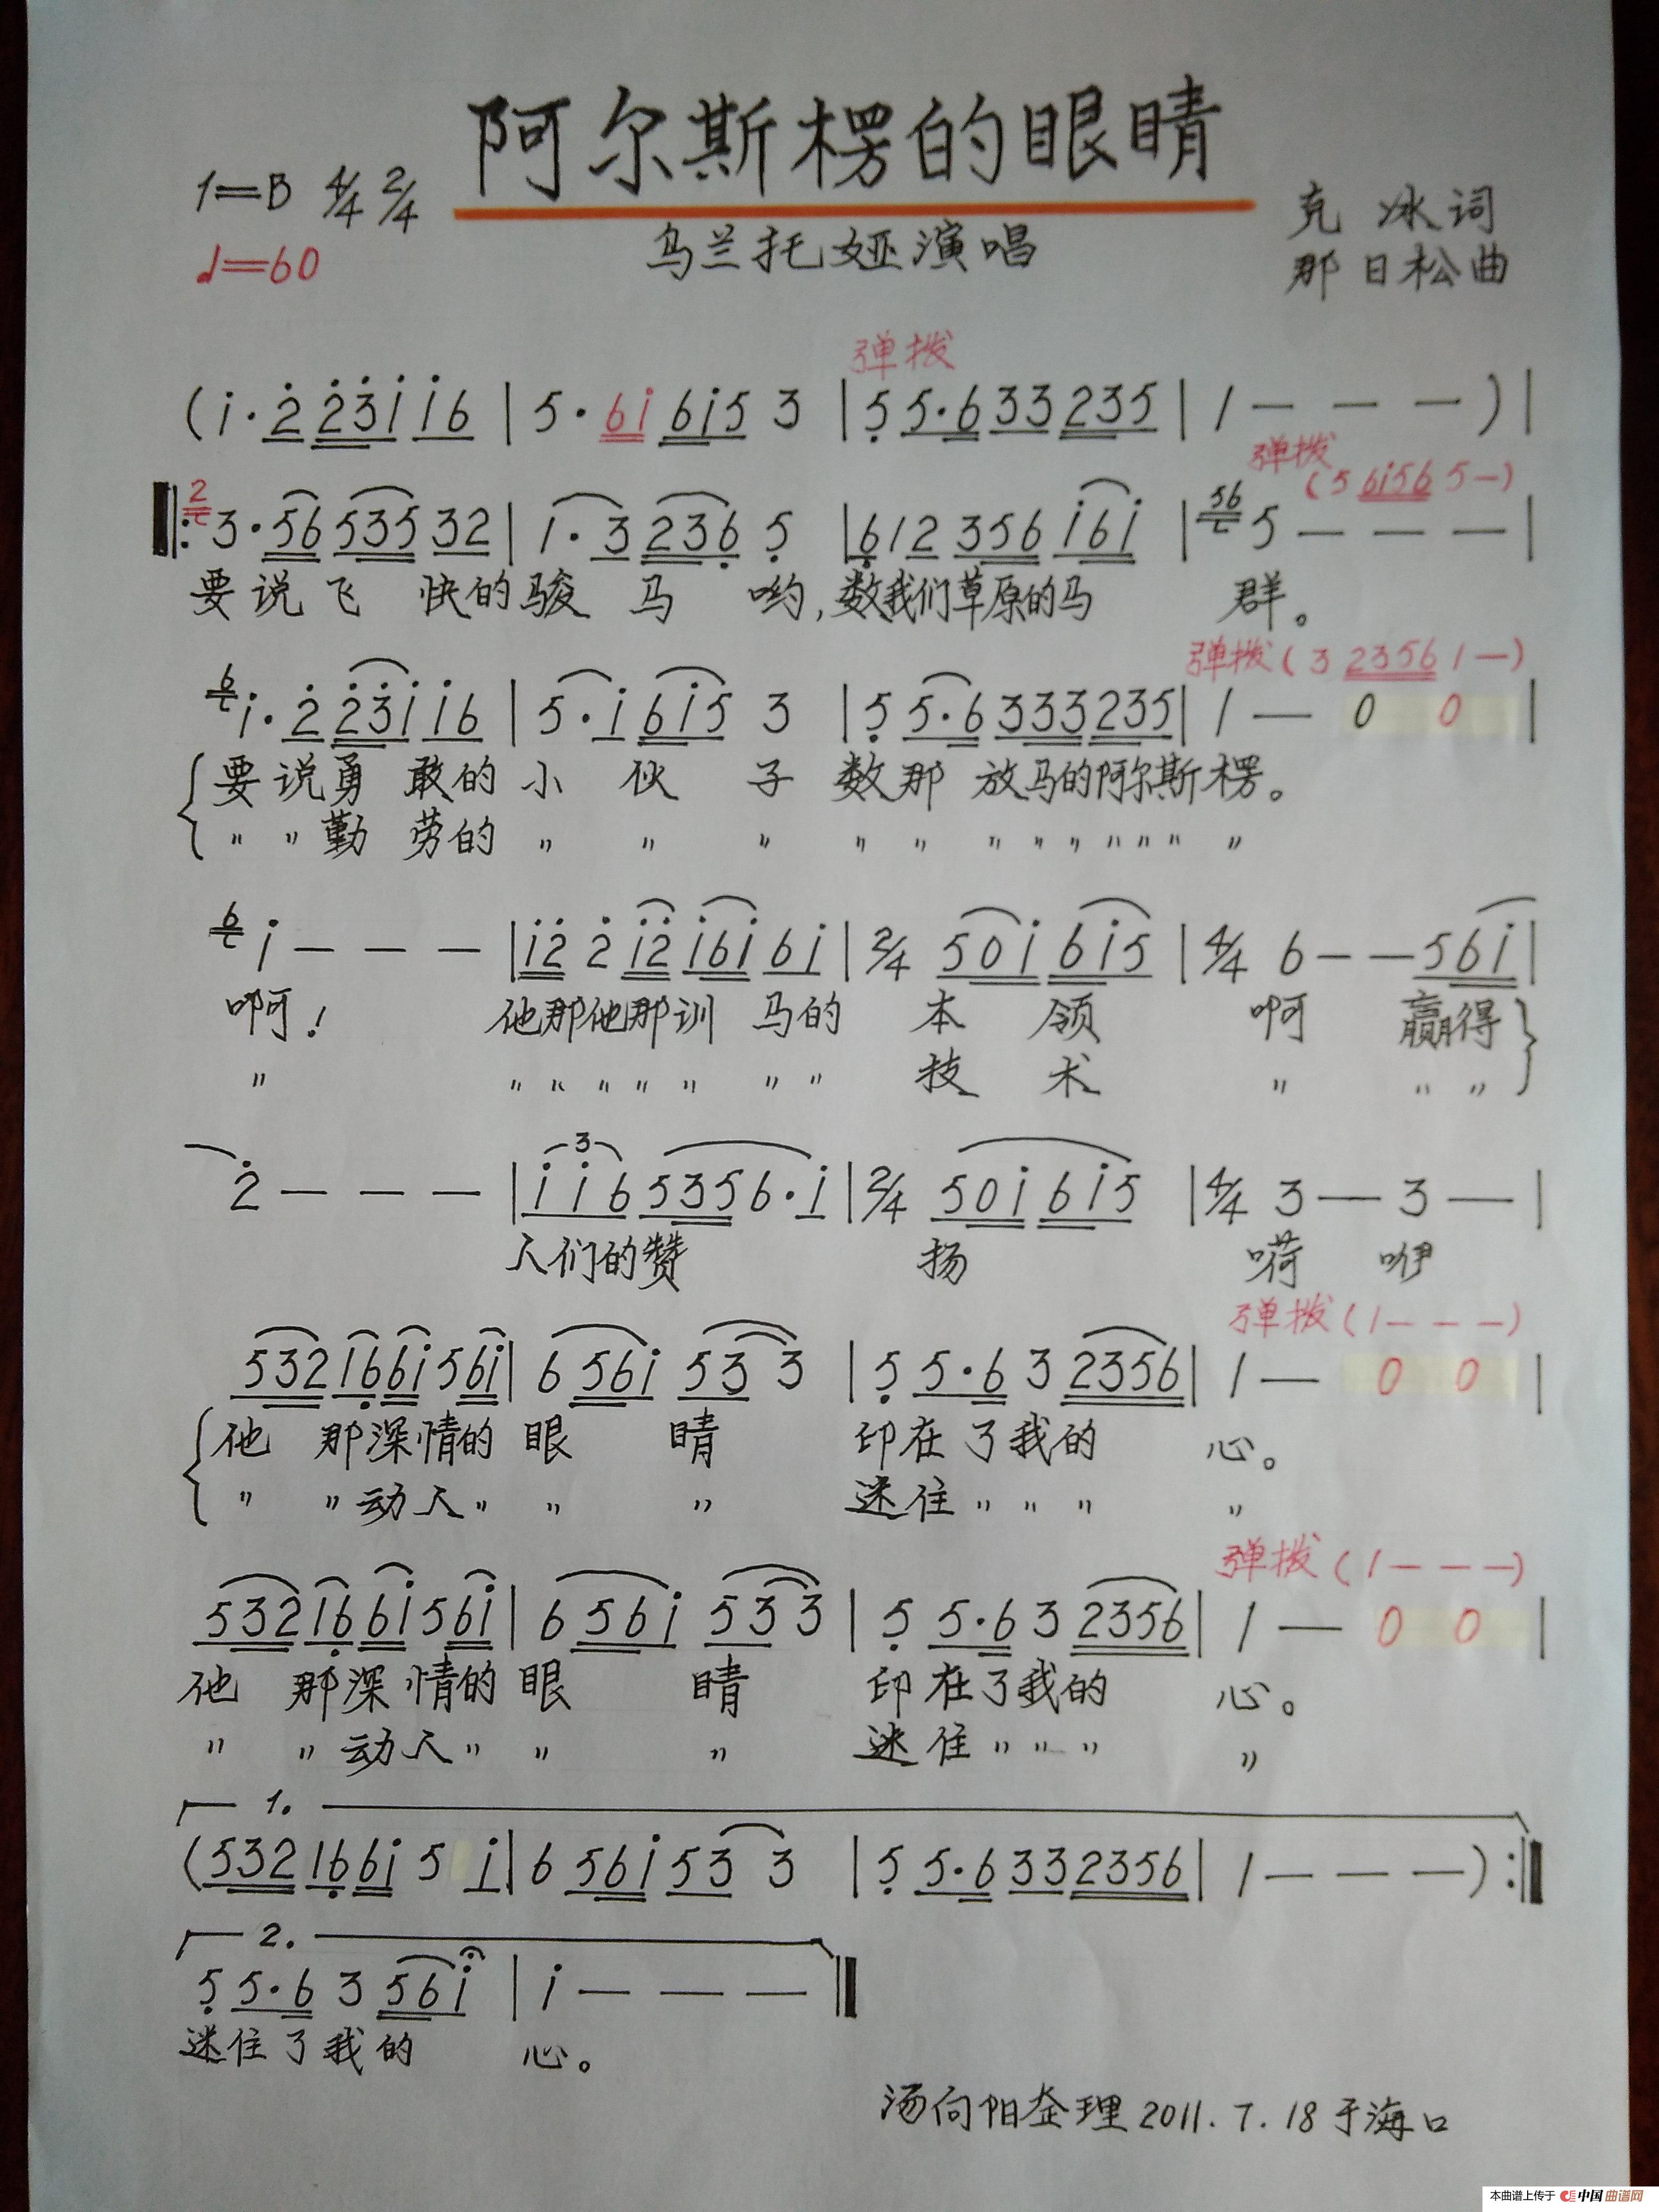 阿尔斯楞的眼睛
1=B 4/4 2/4
♩=60
乌兰托娅演唱
克 冰词
那日松曲
弹拨
(i·2̇ 2̇3̇i i6 | 5·6i 6i5 3 | 5̣ 5·6 33 235 | 1 — — — )|
弹拨
(5 6i56 5—)
‖: 2 3·56 535 32 | 1·3 236̣ 5̣ | 6̣12 356 i6i | 56 5 — — — |
要说飞 快的骏 马 哟,数我们草原的马 群。
弹拨(3 2356 1—)
6 i·2̇ 2̇3̇i i6 | 5·i 6i5 3 | 5̣ 5·6 333 235 | 1 — 0 0 |
要说勇 敢的小 伙 子 数那 放马的阿尔斯楞。
" "勤 劳的 " " " " " " " " " " " "
6 i — — — | i2̇ 2̇ i2̇ i6i 6i | 2/4 50i 6i5 | 4/4 6 — — 56i |
啊! 他那他那训 马的 本 领 啊 赢得
" " " " " " " " 技 术 " " "
2̇ — — — | 3 ii6 5356·i | 2/4 50i 6i5 | 4/4 3 — 3 — |
人们的赞 扬 嗬 咿
弹拨(1— — —)
532 16̣ 6i 5 6i | 6 56i 53 3 | 5̣ 5·6 3 2356 | 1 — 0 0 |
他 那深情的 眼 睛 印在了我的 心。
" "动人" " " 迷住" " " "
弹拨(1— — —)
532 16̣ 6i 5 6i | 6 56i 53 3 | 5̣ 5·6 3 2356 | 1 — 0 0 |
他 那深情的 眼 睛 印在了我的 心。
" "动人" " " 迷住" " " "
1.
(532 16̣ 6i 5 i | 6 56i 53 3 | 5̣ 5·6 33 2356 | 1 — — — ) :‖
2.
5̣ 5·6 3 56i | i — — — ‖
迷住了我的 心。
汤向阳整理2011.7.18于海口
本曲谱上传于 中国曲谱网